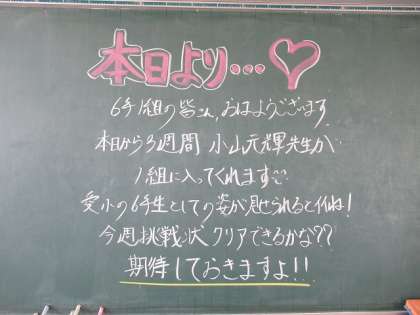 本日より…♡
6年1組の皆さん、おはようございます
本日から3週間 小山元輝先生が
1組に入ってくれます
受小の6年生としての姿が見せられるといいね!
今週挑戦状クリアできるかな??
期待しておきますよ!!